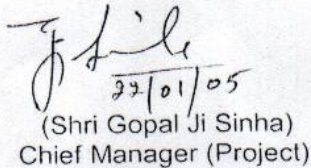 22/01/05
(Shri Gopal Ji Sinha)
Chief Manager (Project)